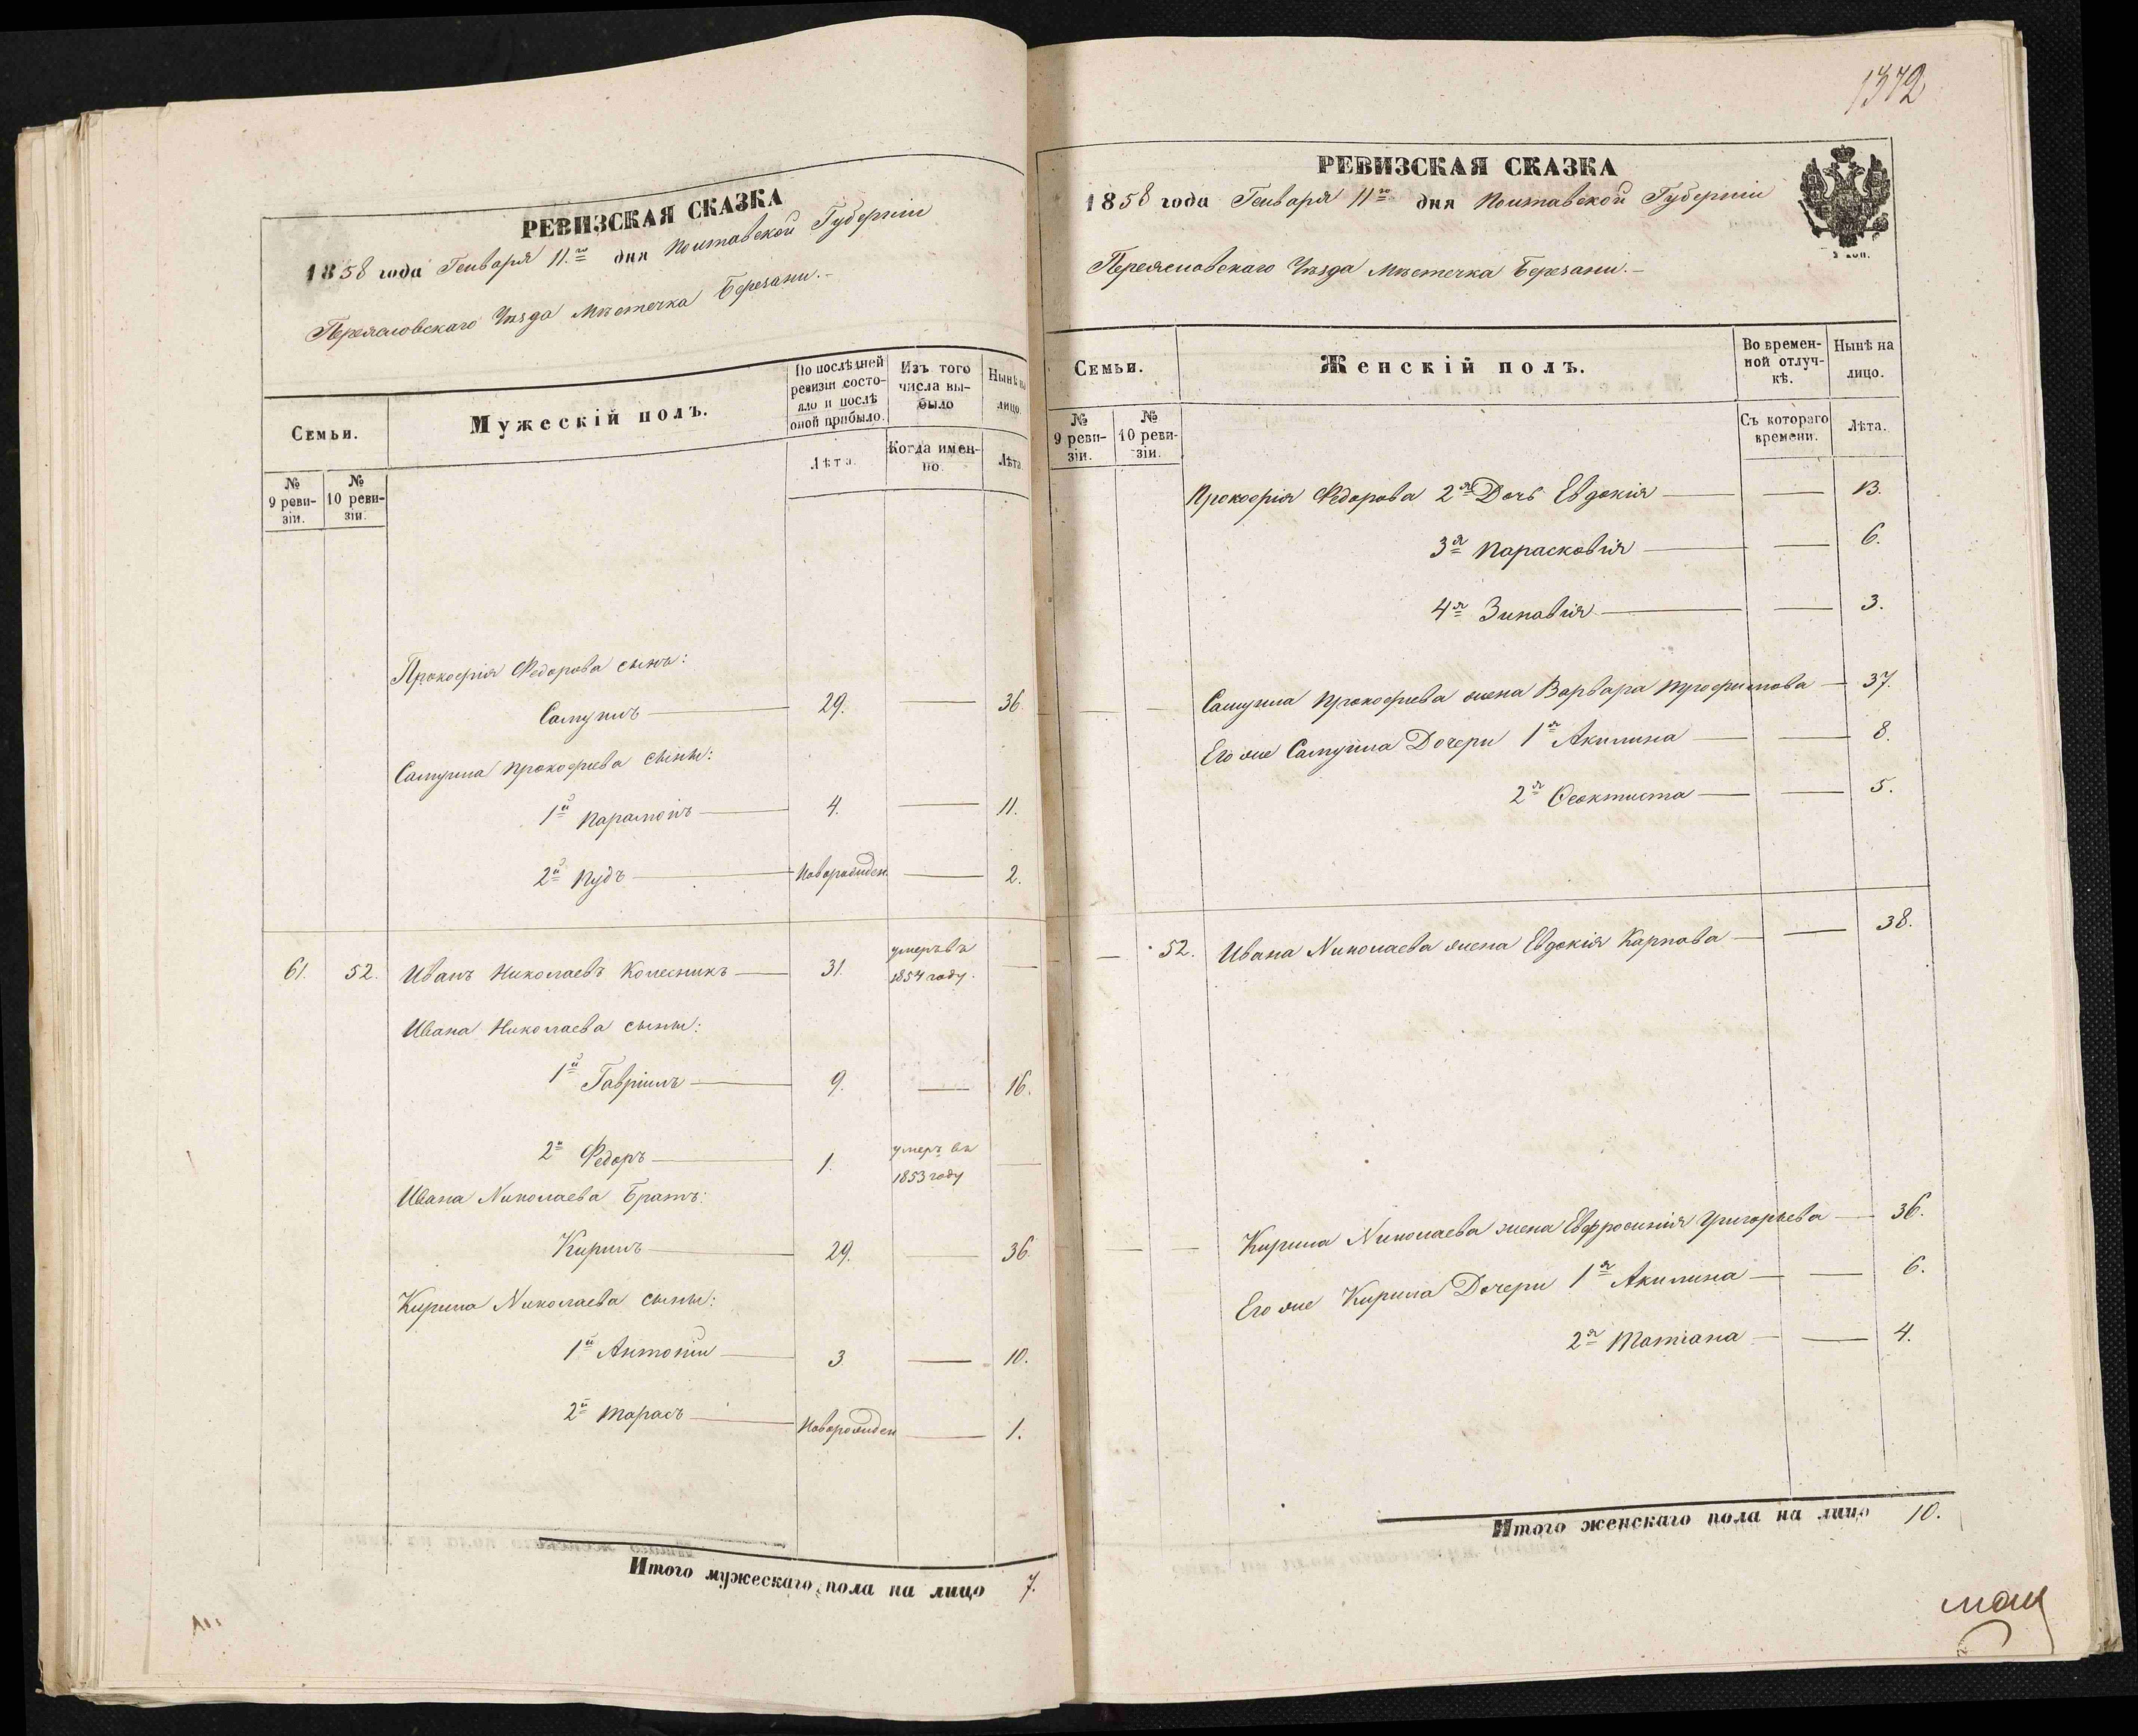 РЕВИЗСКАЯ СКАЗКА
1858 года Генваря 11го дня Полтавской Губерніи
Переяславскаго Уѣзда мѣстечка Березани.
Семьи.
Мужескій полъ.
По послѣдней ревизіи состояло и послѣ оной прибыло.
Изъ того числа выбыло
Нынѣ на лицо.
№ 9 ревизіи.
№ 10 ревизіи.
Лѣта.
Когда именно.
Лѣта.
Прокофія Федорова сынъ:
Самуилъ 29. 36.
Самуила Прокофіева сыны:
1й Парамонъ 4. 11.
2й Пудъ Новорожден 2.
61. 52. Иванъ Николаевъ Колесникъ 31. умеръ въ 1854 году.
Ивана Николаева сыны:
1й Гавріилъ 9. 16.
2й Федоръ 1. умеръ въ 1853 году
Ивана Николаева Братъ:
Кирилъ 29. 36
Кирила Николаева сыны:
1й Антоній 3 10.
2й Тарасъ Новорожден 1.
Итого мужескаго пола на лицо 7.
1372
РЕВИЗСКАЯ СКАЗКА
1858 года Генваря 11го дня Полтавской Губерніи
Переяславскаго Уѣзда мѣстечка Березани.
Семьи.
Женскій полъ.
Во временной отлучкѣ.
Нынѣ на лицо.
№ 9 ревизіи.
№ 10 ревизіи.
Съ котораго времени.
Лѣта.
Прокофія Федорова 2я Дочь Евдокія 13.
3я Парасковія 6.
4я Зиновія 3.
Самуила Прокофіева жена Варвара Трофимова 37.
Его же Самуила Дочери 1я Акилина 8.
2я Феоктиста 5.
52. Ивана Николаева жена Евдокія Карпова 38.
Кирила Николаева жена Евфросинія Григорьева 36.
Его же Кирила Дочери 1я Акилина 6.
2я Татіана 4.
Итого женскаго пола на лицо 10.